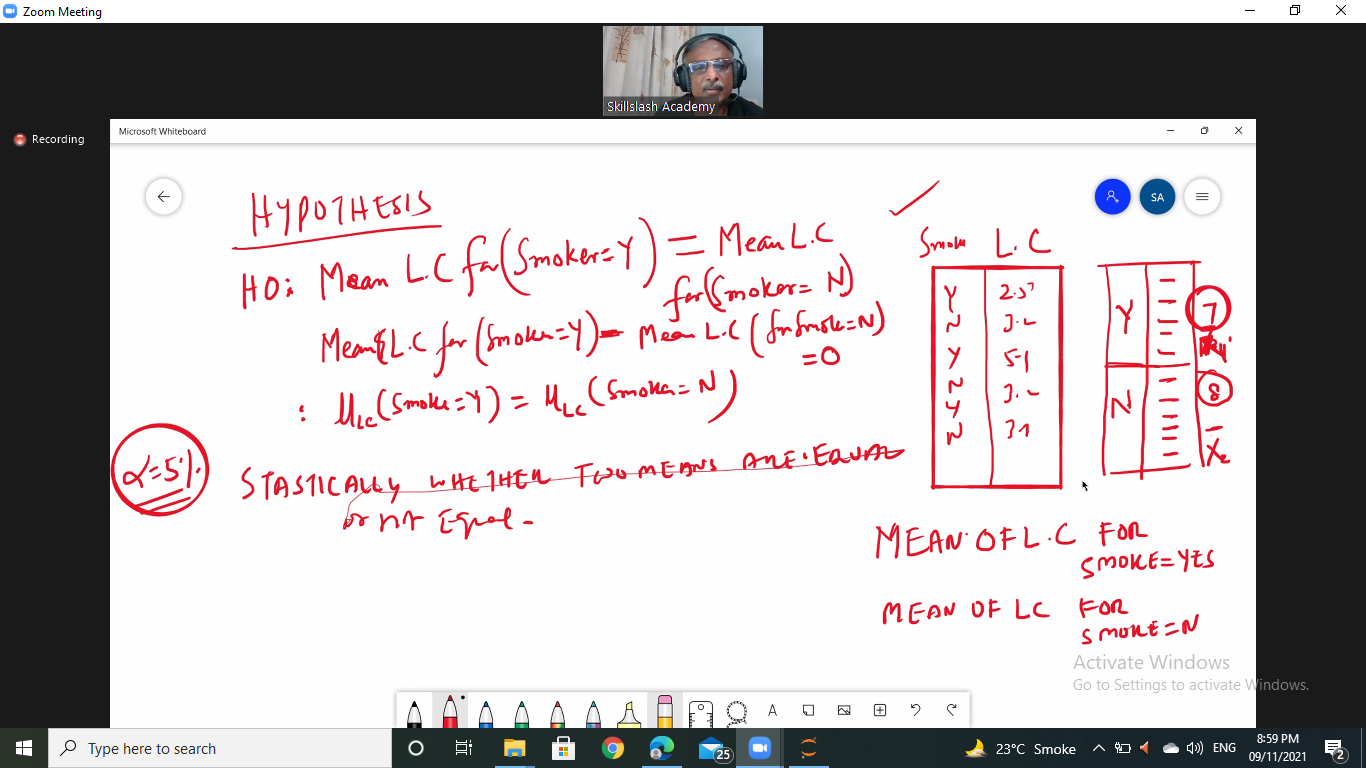 Zoom Meeting
Skillslash Academy
Recording
Microsoft Whiteboard
SA
HYPOTHESIS
H0: Mean L.C for (Smoker=Y) = Mean L.C
for (Smoker= N)
Mean L.C for (Smoker=Y) - Mean L.C (for Smok=N)
=0
: μLC (Smoke=Y) = μLC (Smoke= N)
α=5%.
STASTICALLY WHETHER TWO MEANS ARE EQUAL
or not Equal -
Smoke L.C
Y
N 3.2
Y 5.1
N 3.2
Y
N 3.1
Y 7
N 8
MEAN OF L.C FOR
SMOKE=YES
MEAN OF LC FOR
SMOKE=N
Activate Windows
Go to Settings to activate Windows.
A
Type here to search
25
23°C Smoke
ENG
8:59 PM
09/11/2021
2